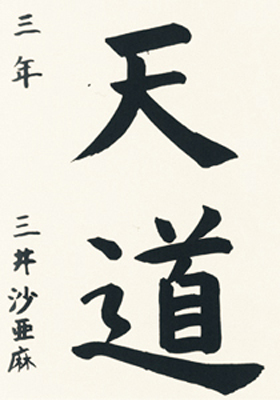 天道
三年 三井沙亜麻